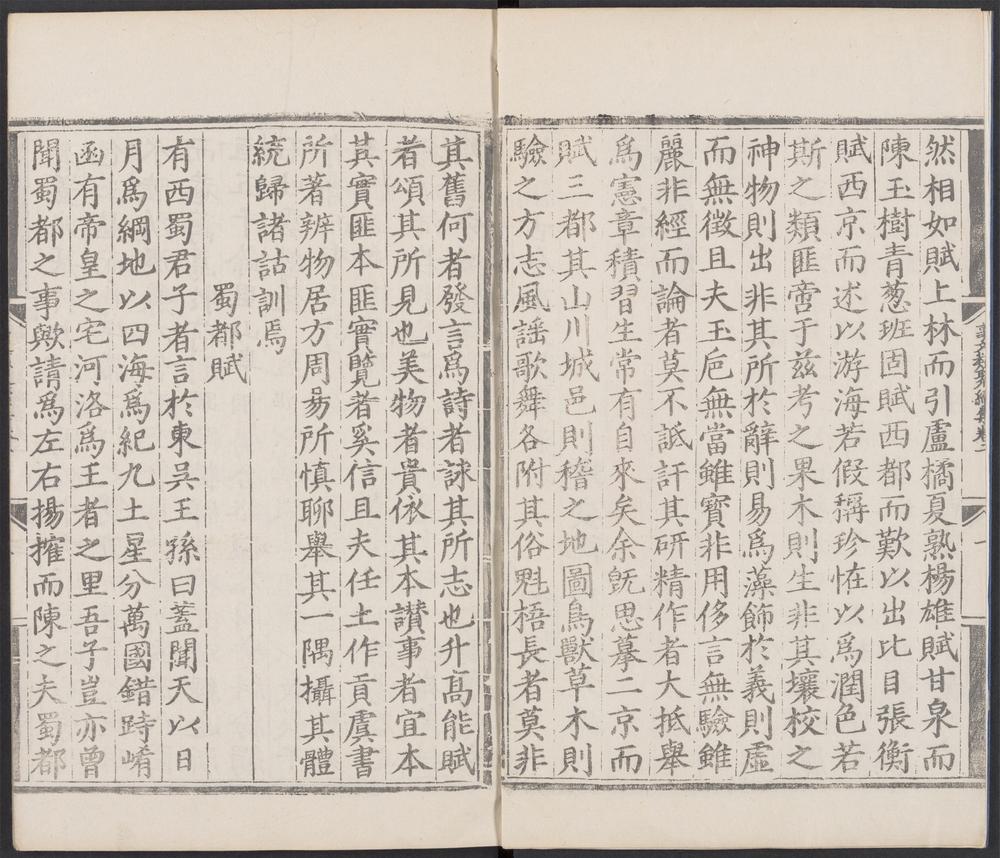 然相如賦上林而引盧橘夏熟楊雄賦甘泉而
陳玉樹青葱班固賦西都而歎以出比目張衡
賦西京而述以游海若假稱珍怪以爲潤色若
斯之類匪啻于兹考之果木則生非其壤校之
神物則出非其所於辭則易爲藻飾於義則虛
而無徵且夫玉巵無當雖寶非用侈言無驗雖
麗非經而論者莫不詆訐其研精作者大抵舉
爲憲章積習生常有自來矣余旣思摹二京而
賦三都其山川城邑則稽之地圖鳥獸草木則
驗之方志風謡歌舞各附其俗魁梧長者莫非
其舊何者發言爲詩者詠其所志也升髙能賦
者頌其所見也美物者貴依其本讃事者宜本
其實匪本匪實覽者奚信且夫任土作貢虞書
所著辨物居方周昜所慎聊舉其一隅攝其體
統歸諸詁訓焉
蜀都賦
有西蜀君子者言於東吳王孫曰蓋聞天以日
月爲綱地以四海爲紀九土星分萬國錯跱崤
函有帝皇之宅河洛爲王者之里吾子豈亦曾
聞蜀都之事歟請爲左右揚搉而陳之夫蜀都